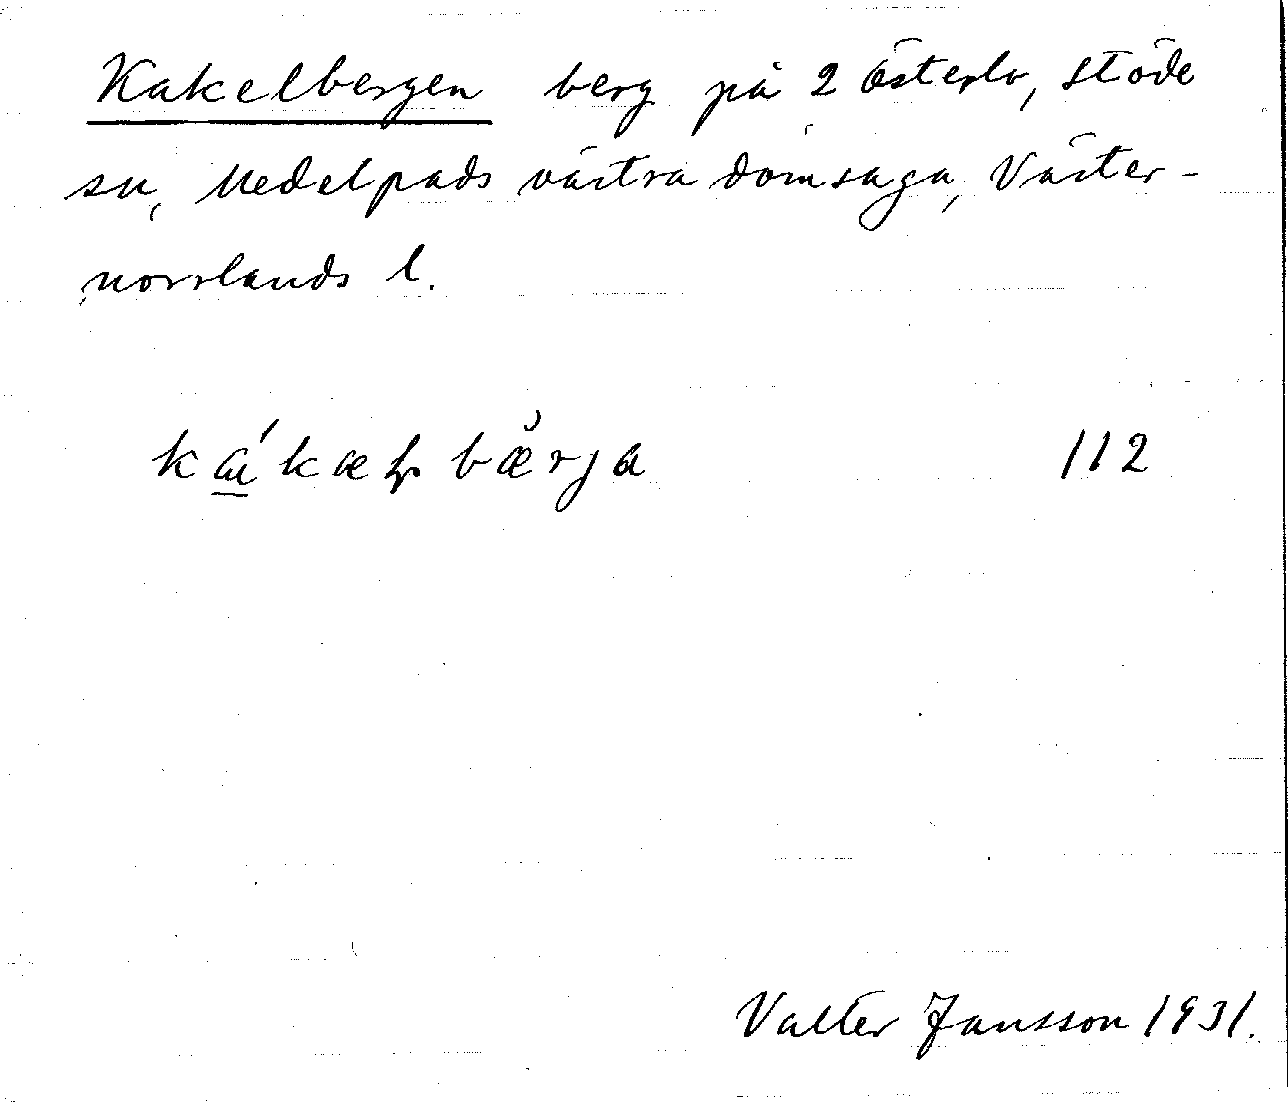 Kakelbergen berg på 2 Österlo, Stöde
sn, Medelpads västra domsaga, Väster-
norrlands l.
112
Valter Jansson 1931.